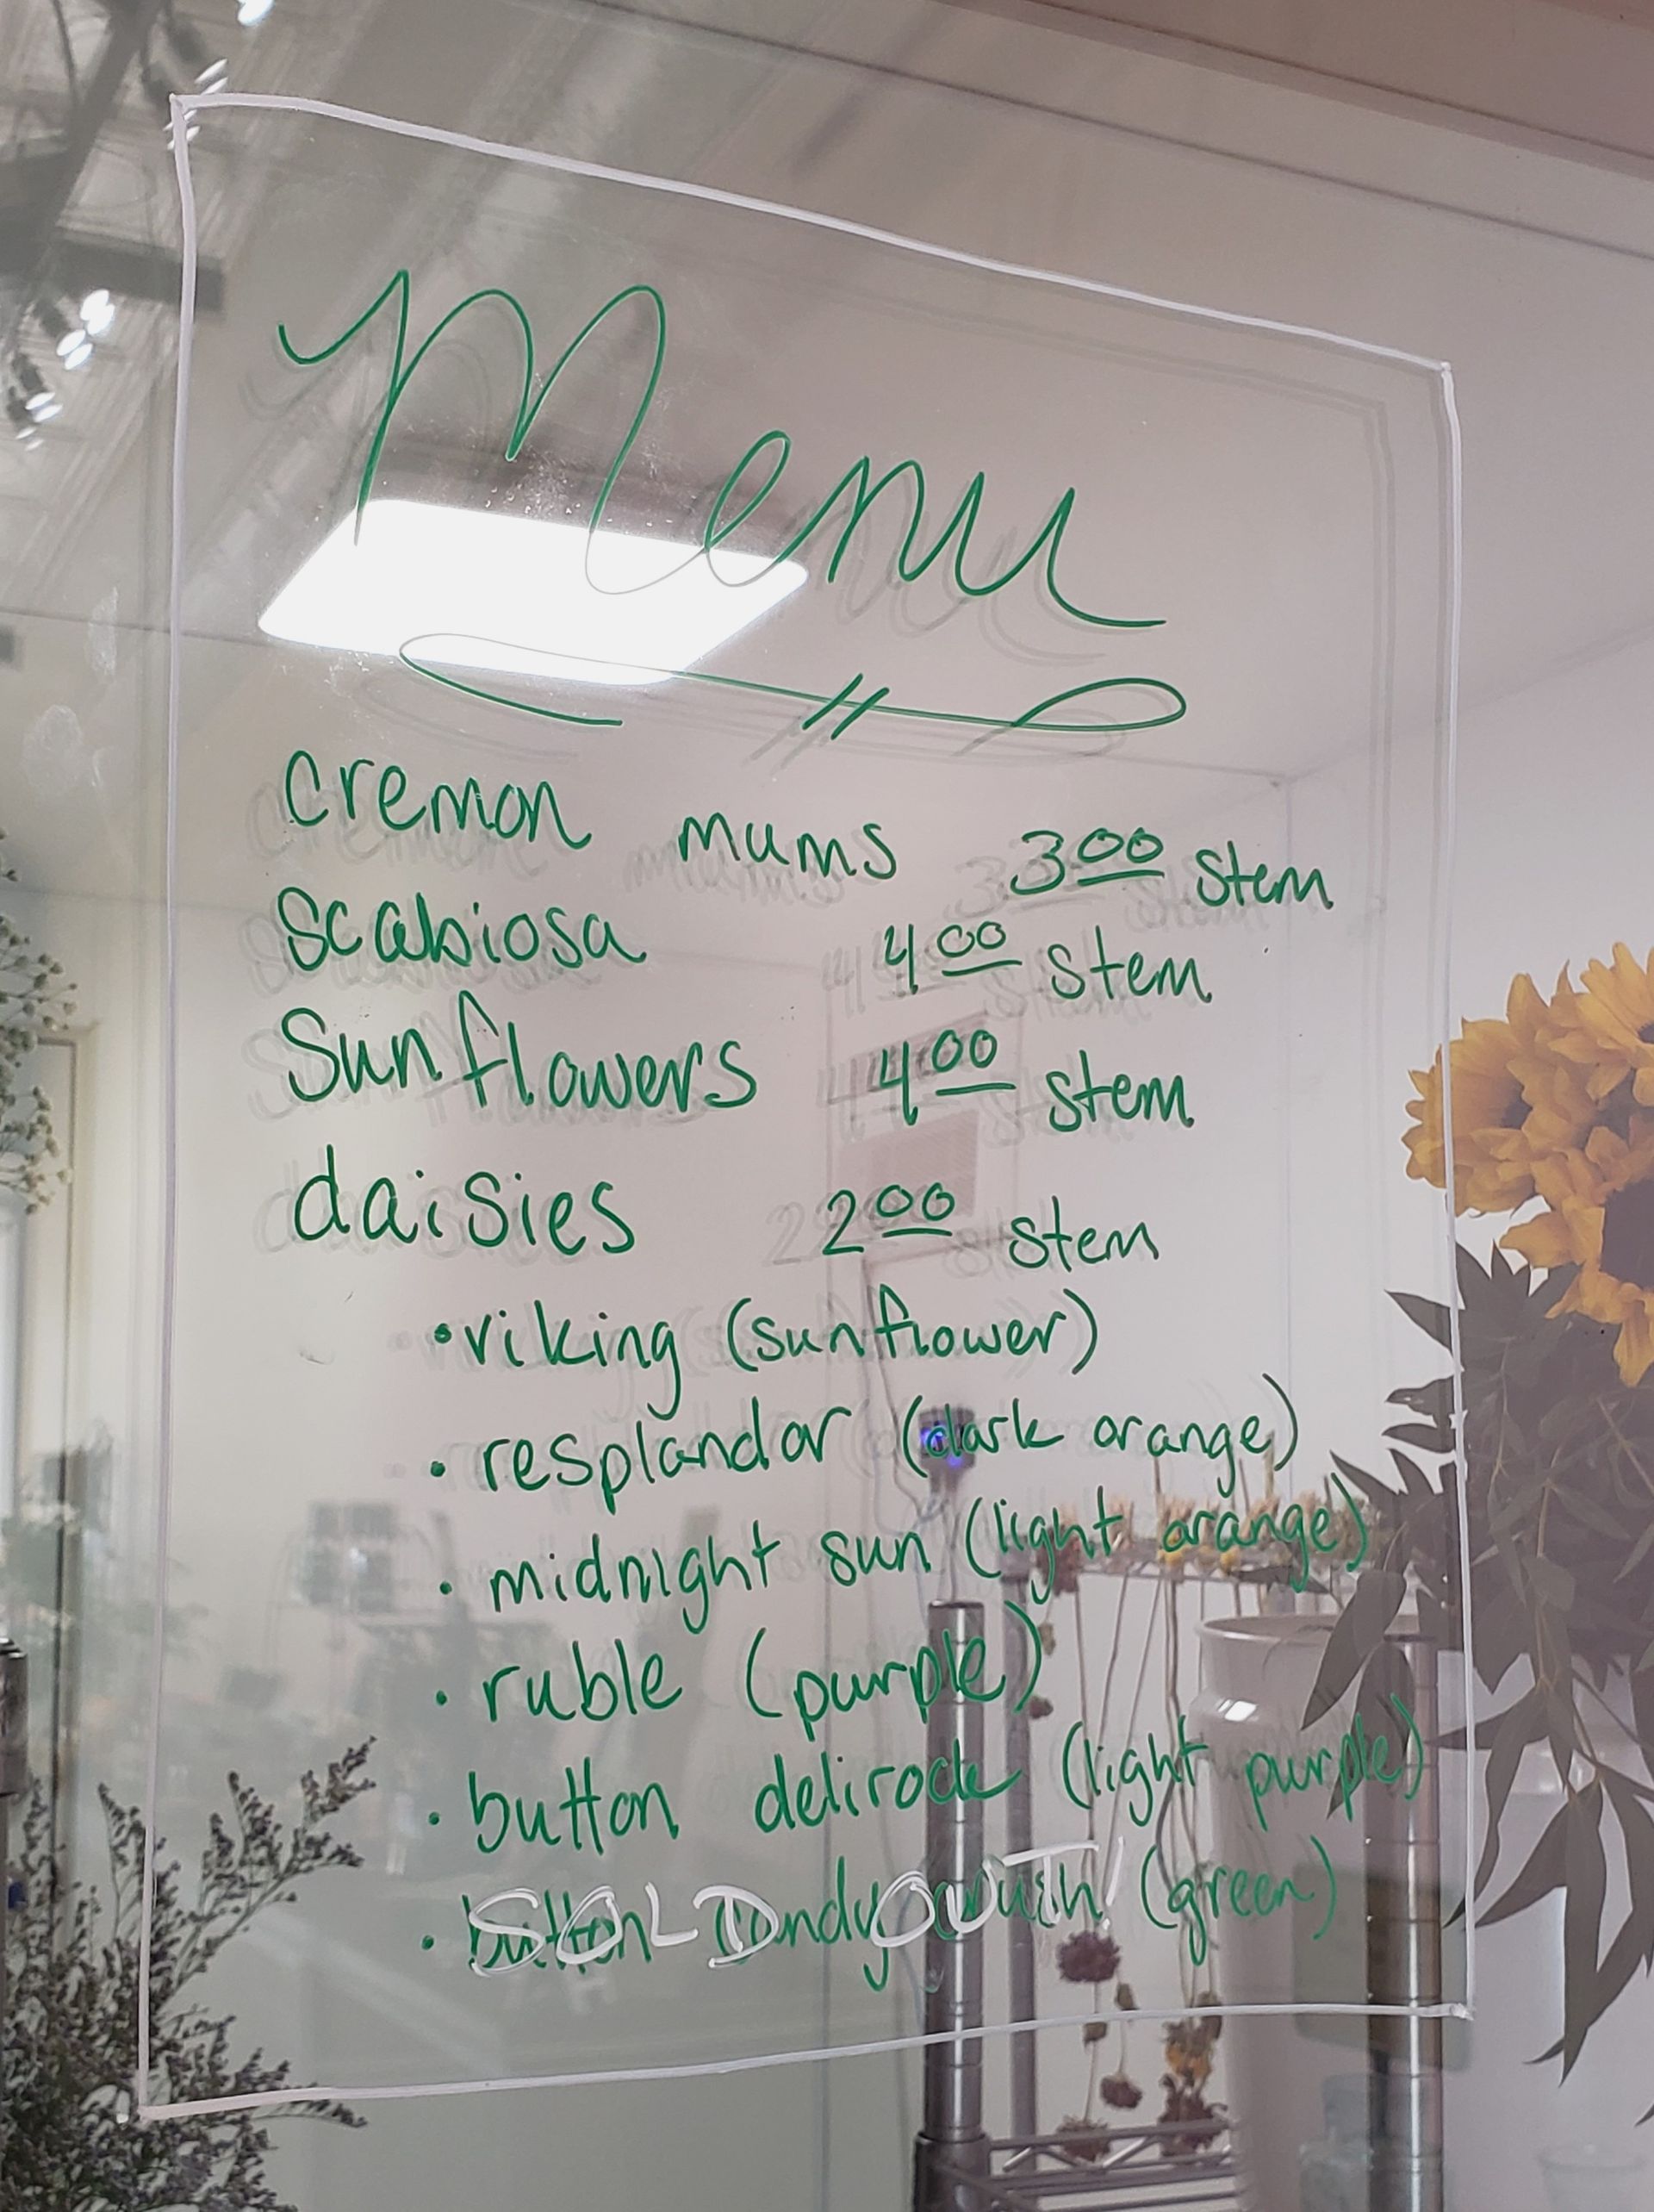 Menu
cremon mums 3.00 stem
Scabiosa 4.00 stem
Sunflowers 4.00 stem
daisies 2.00 stem
• viking (sunflower)
• resplandor (dark orange)
• midnight sun (light orange)
• ruble (purple)
• button delirock (light purple)
• button (green)
SOLD OUT!